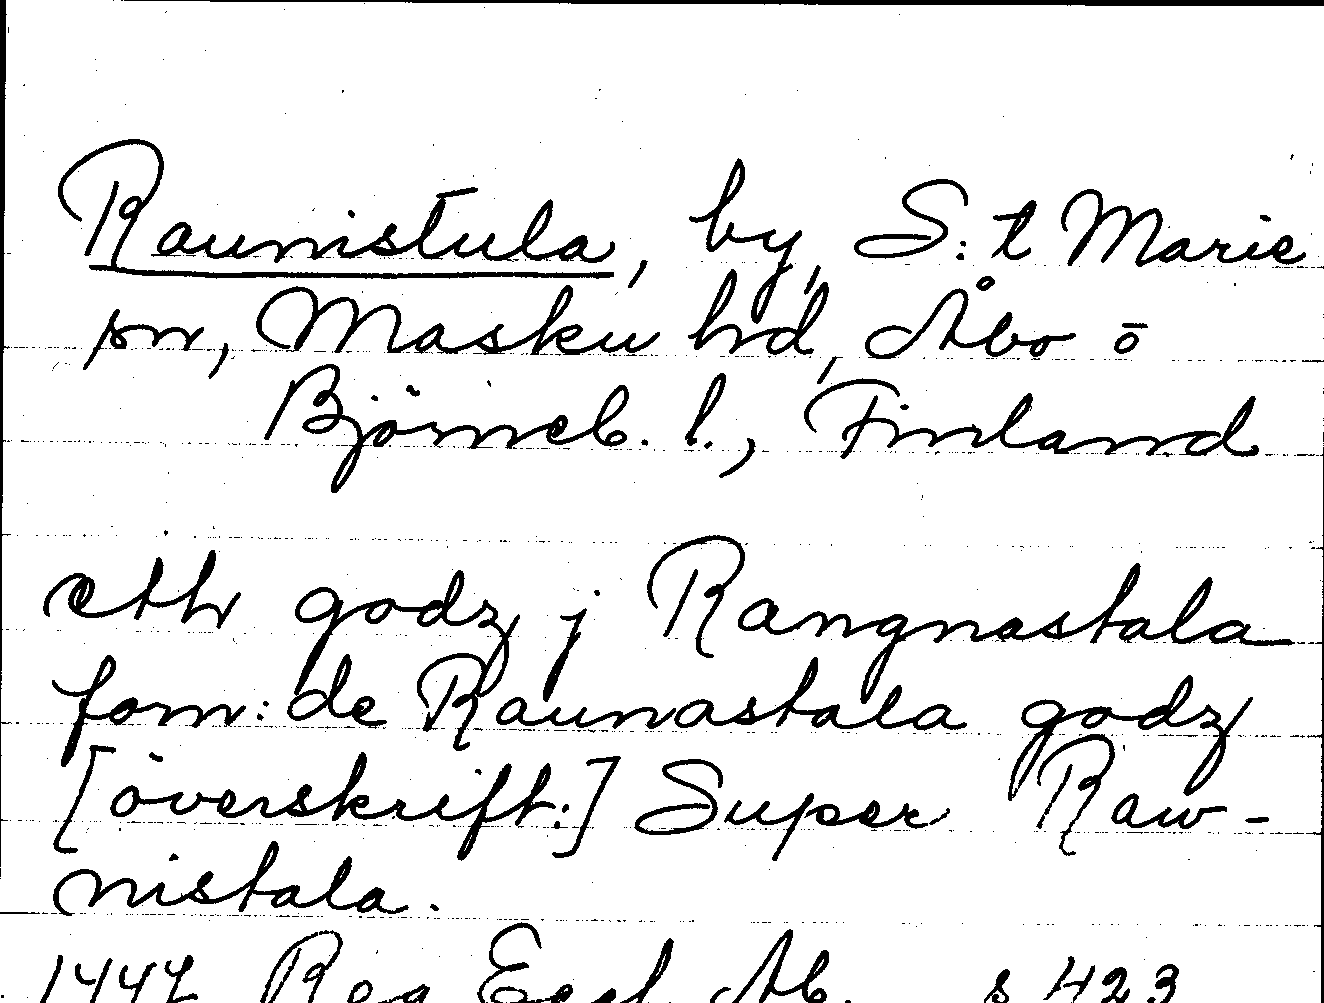 Raunistula, by, S:t Marie
sn, Masku hd, Åbo o
Björneb. l., Finland
eth godz j Rangnastala
forn: de Raunastala godz
[överskrift:] Super Raw-
nistala.
Reg Eccl Ab. s 423